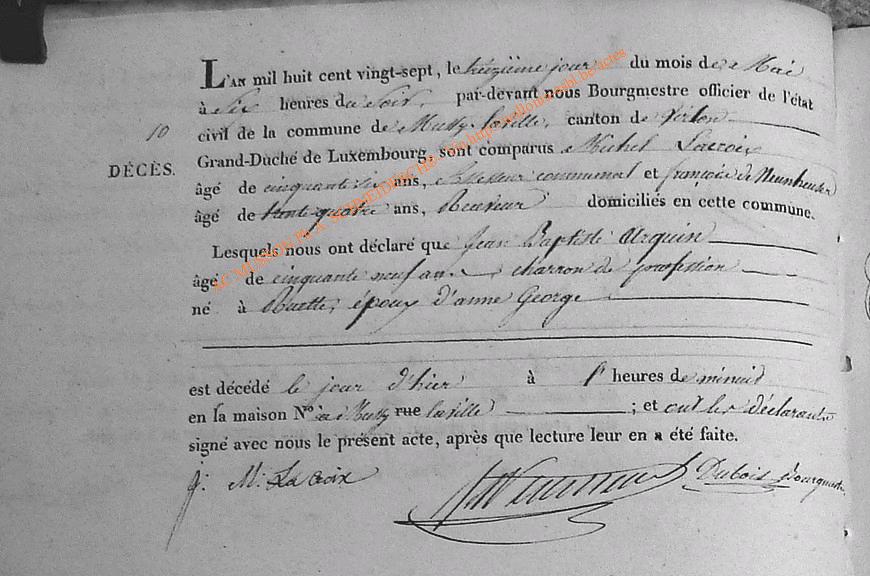 L'AN mil huit cent vingt-sept, le treizième jour du mois de Mai
à Six heures du Soir, par-devant nous Bourgmestre officier de l'état
10 civil de la commune de Mussy laville, canton de Virton
DÉCÈS. Grand-Duché de Luxembourg, sont comparus Michel Lacroix
âgé de cinquante six ans, assesseur communal et françois de Neunheuser
âgé de trente quatre ans, Receveur domiciliés en cette commune.
Lesquels nous ont déclaré que Jean Baptiste Arquin
âgé de cinquante neuf ans charron de profession
né à Ruette, époux d'anne George
est décédé le jour d'hier à heures de minuit
en la maison N° à Mussy rue laville ; et ont les déclarants
signé avec nous le présent acte, après que lecture leur en a été faite.
j: M: La Croix Dubois Bourgmestre